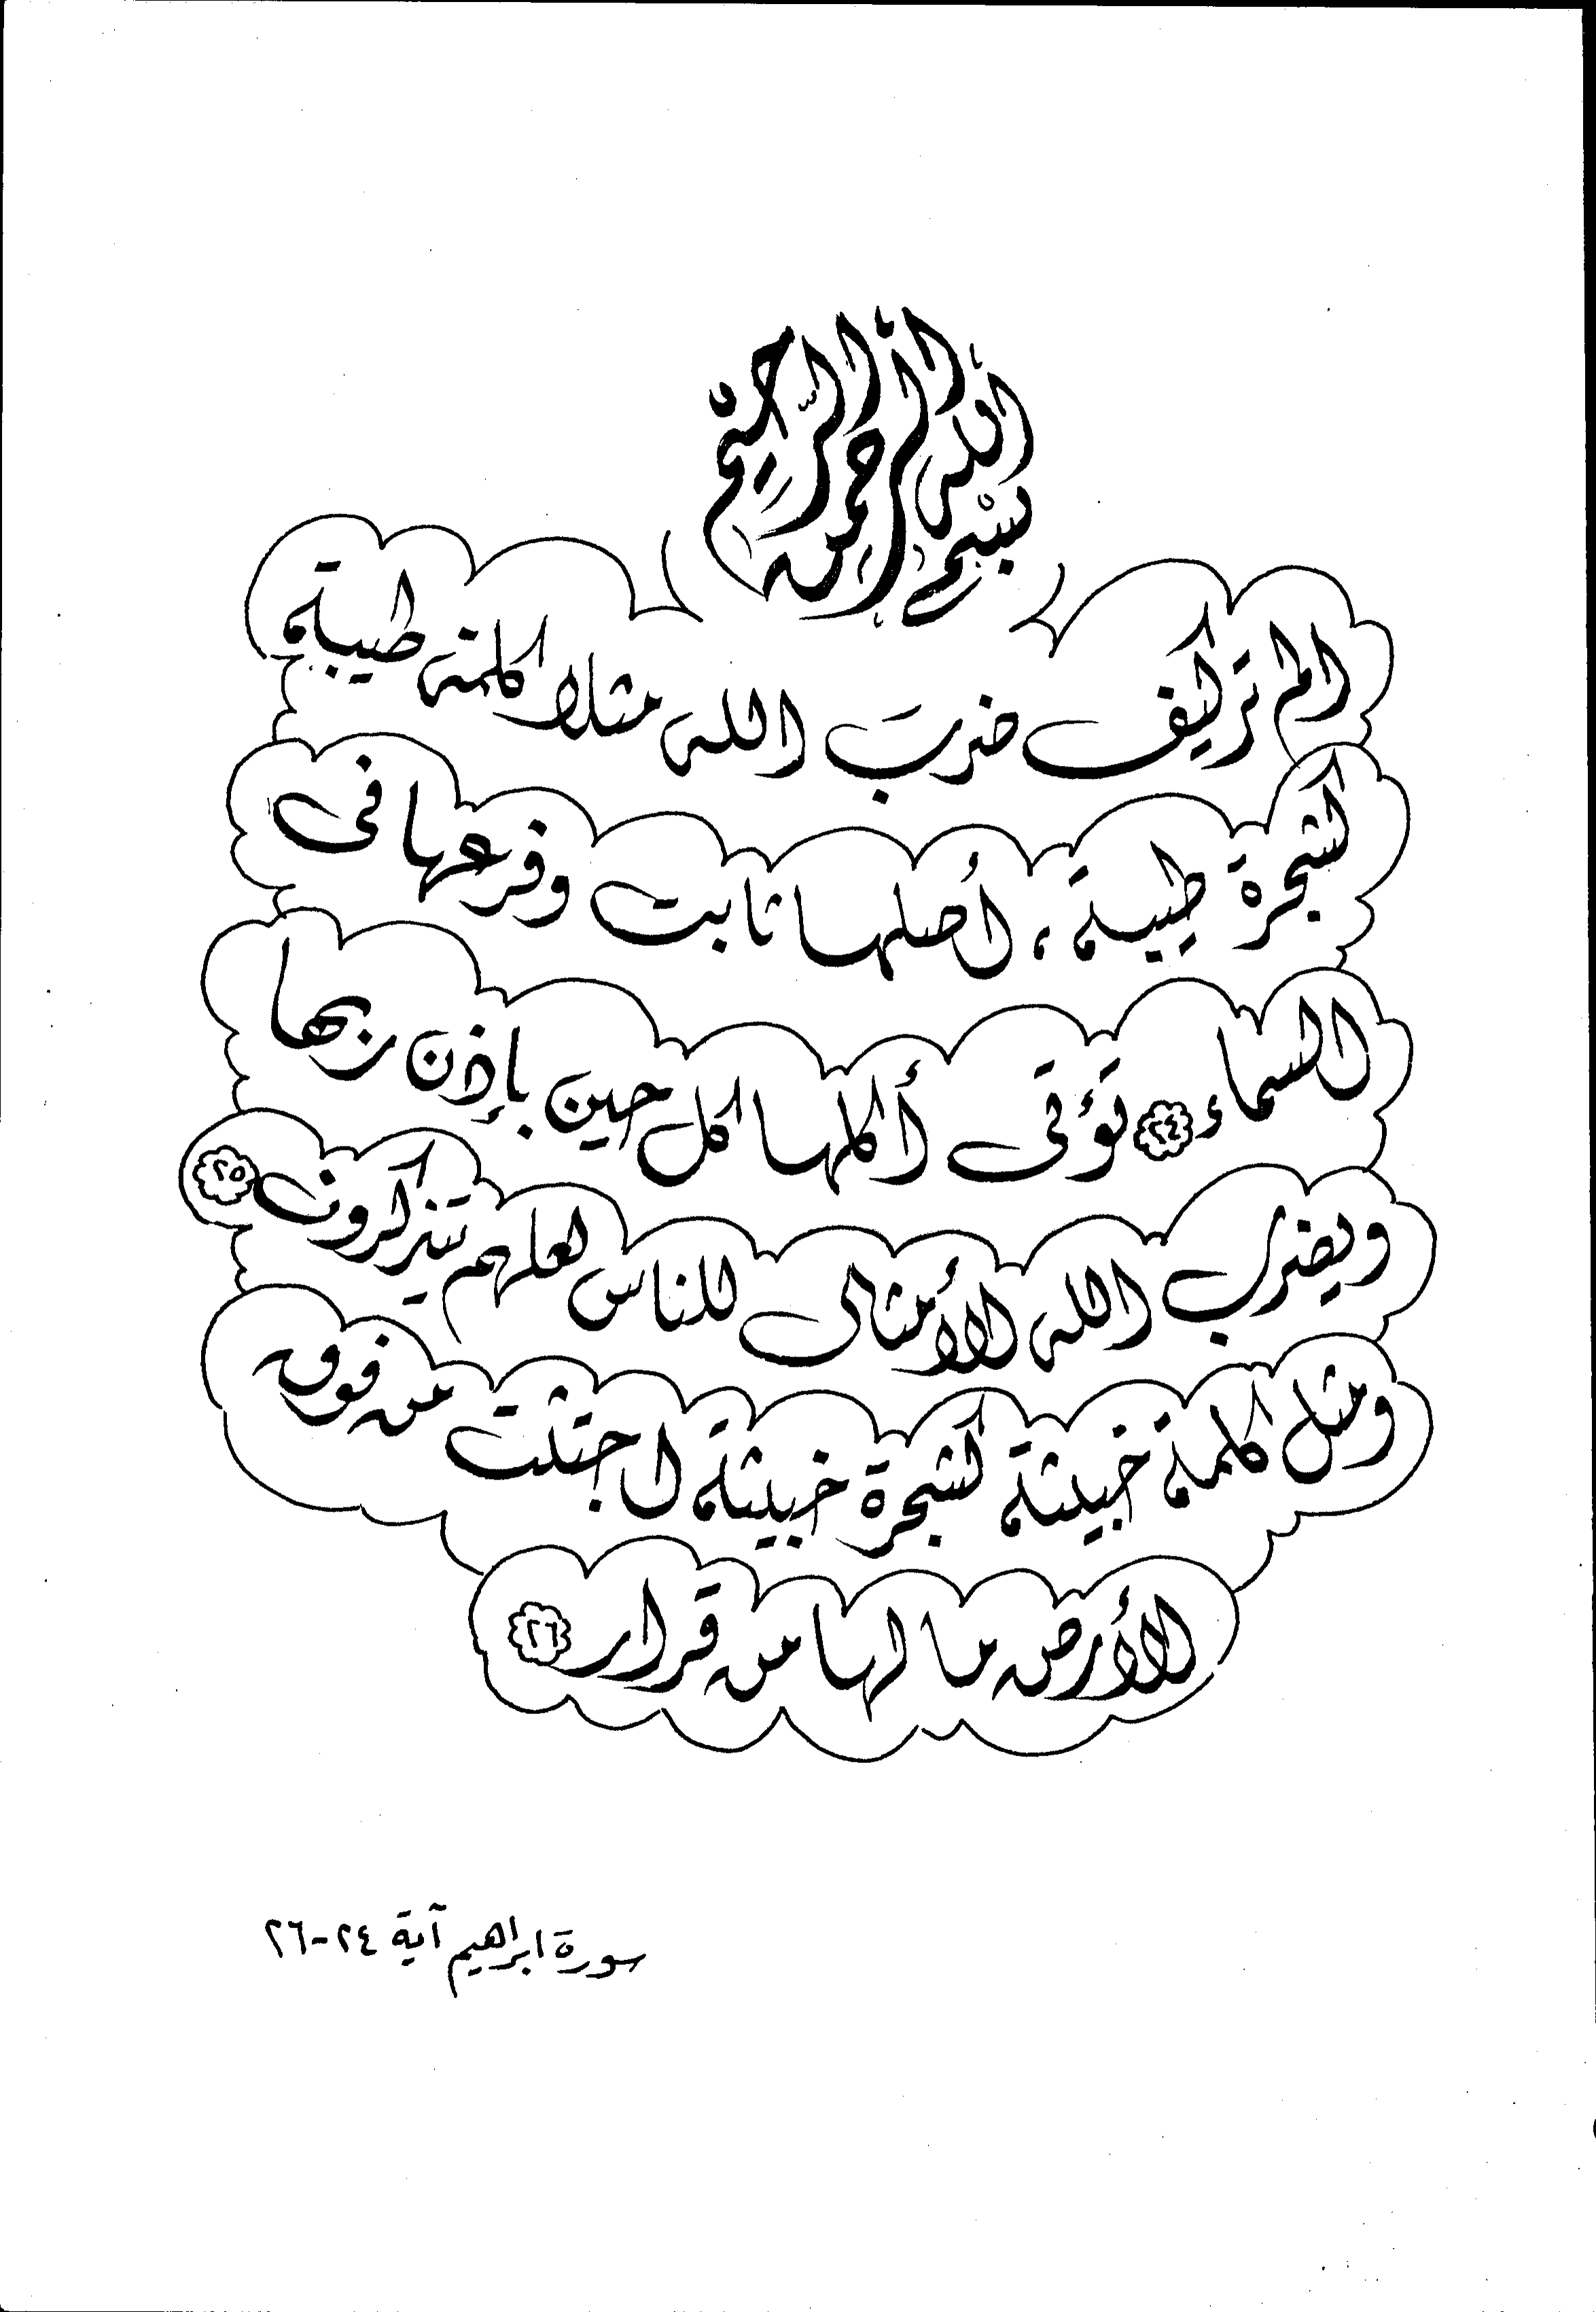 بسم الله الرحمن الرحيم
الم تر كيف ضرب الله مثلا كلمة طيبة
كشجرة طيبة، أصلها ثابت وفرعها فى
السماء ٢٤ تؤتى أكلها كل حين بإذن ربها
ويضرب الله الأمثال للناس لعلهم يتذكرون ٢٥
ومثل كلمة خبيثة كشجرة خبيثة اجتثت من فوق
الأرض ما لها من قرار ٢٦
سورة ابراهيم آية ٢٤-٢٦